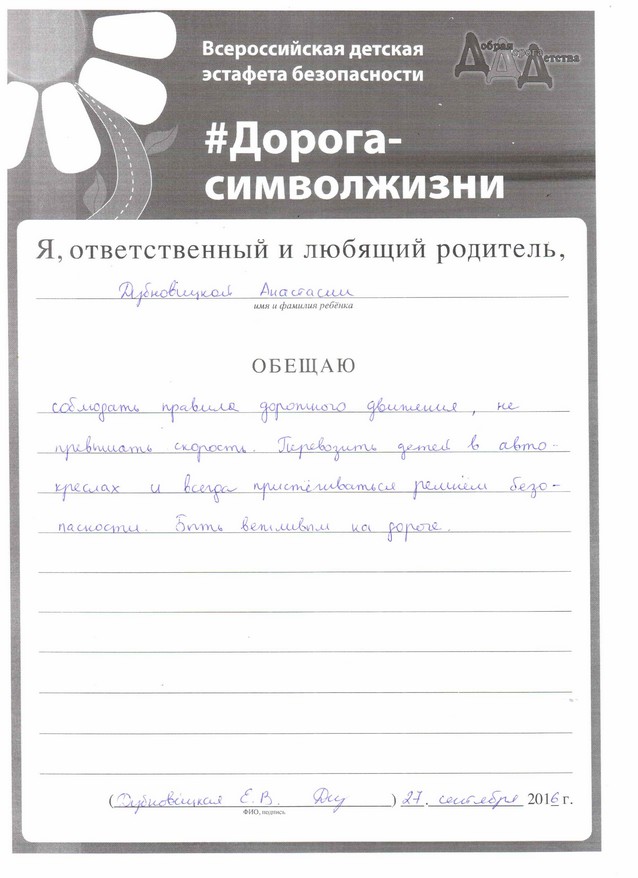 Всероссийская детская
эстафета безопасности
Добрая Дорога Детства
#Дорога-
символжизни
Я, ответственный и любящий родитель,
Дубновицкой Анастасии
имя и фамилия ребёнка
ОБЕЩАЮ
соблюдать правила дорожного движения, не
превышать скорость. Перевозить детей в авто-
креслах и всегда пристёгиваться ремнём безо-
пасности. Быть вежливым на дороге.
(Дубновицкая Е.В. ) 27. сентября 2016 г.
ФИО, подпись